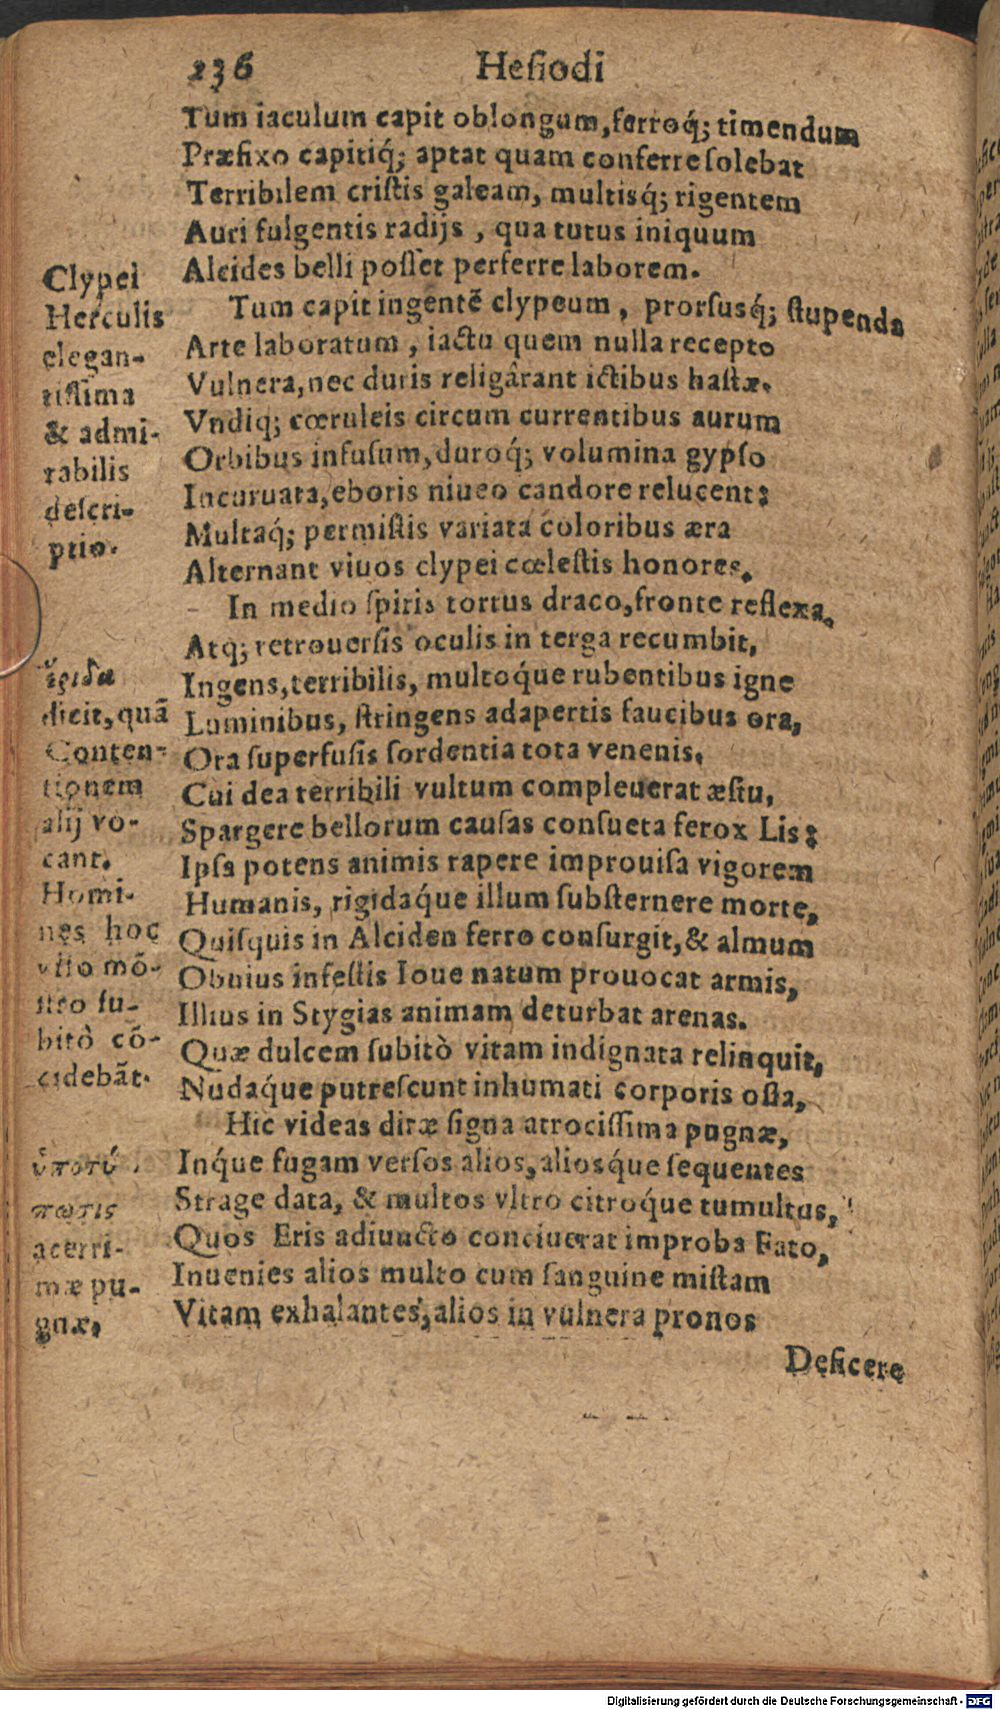 236 Hesiodi
Tum iaculum capit oblongum, ferroq́; timendum
Præfixo capitiq́; aptat quam conferre solebat
Terribilem cristis galeam, multisq́; rigentem
Auri fulgentis radijs , qua tutus iniquum
Alcides belli posset perferre laborem.
Tum capit ingentē clypeum , prorsusq́; stupenda
Arte laboratum , iactu quem nulla recepto
Vulnera, nec duris religârant ictibus hastæ.
Vndiq; cœruleis circum currentibus aurum
Orbibus infusum, duroq́; volumina gypso
Incuruata, eboris niueo candore relucent:
Multaq́; permistis variata coloribus æra
Alternant viuos clypei cœlestis honores.
In medio spiris tortus draco, fronte reflexa,
Atq; retrouersis oculis in terga recumbit,
Ingens, terribilis, multoque rubentibus igne
Luminibus, stringens adapertis faucibus ora,
Ora superfusis sordentia tota venenis.
Cui dea terribili vultum compleuerat æstu,
Spargere bellorum causas consueta ferox Lis:
Ipsa potens animis rapere improuisa vigorem
Humanis, rigidaq́ue illum substernere morte,
Quisquis in Alciden ferro consurgit, & almum
Obuius infestis Ioue natum prouocat armis,
Illius in Stygias animam deturbat arenas.
Quæ dulcem subitò vitam indignata relinquit,
Nudaq́ue putrescunt inhumati corporis ossa,
Hic videas diræ signa atrocissima pugnæ,
Inq́ue fugam versos alios, aliosq́ue sequentes
Strage data, & multos vltro citroq́ue tumultus,
Quos Eris adiuncto conciuerat improba Fato,
Inuenies alios multo cum sanguine mistam
Vitam exhalantes, alios in vulnera pronos
Desicere
Clypei
Herculis
elegan-
tissima
& admi-
rabilis
descri-
ptio.
ἔριδα
dicit, quā
Conten-
tionem
alij vo-
cant.
Homi-
nes hoc
viso mō-
stro su-
bitò cō-
cidebāt.
acerri-
mæ pu-
gnæ,
Digitalisierung gefördert durch die Deutsche Forschungsgemeinschaft - DFG